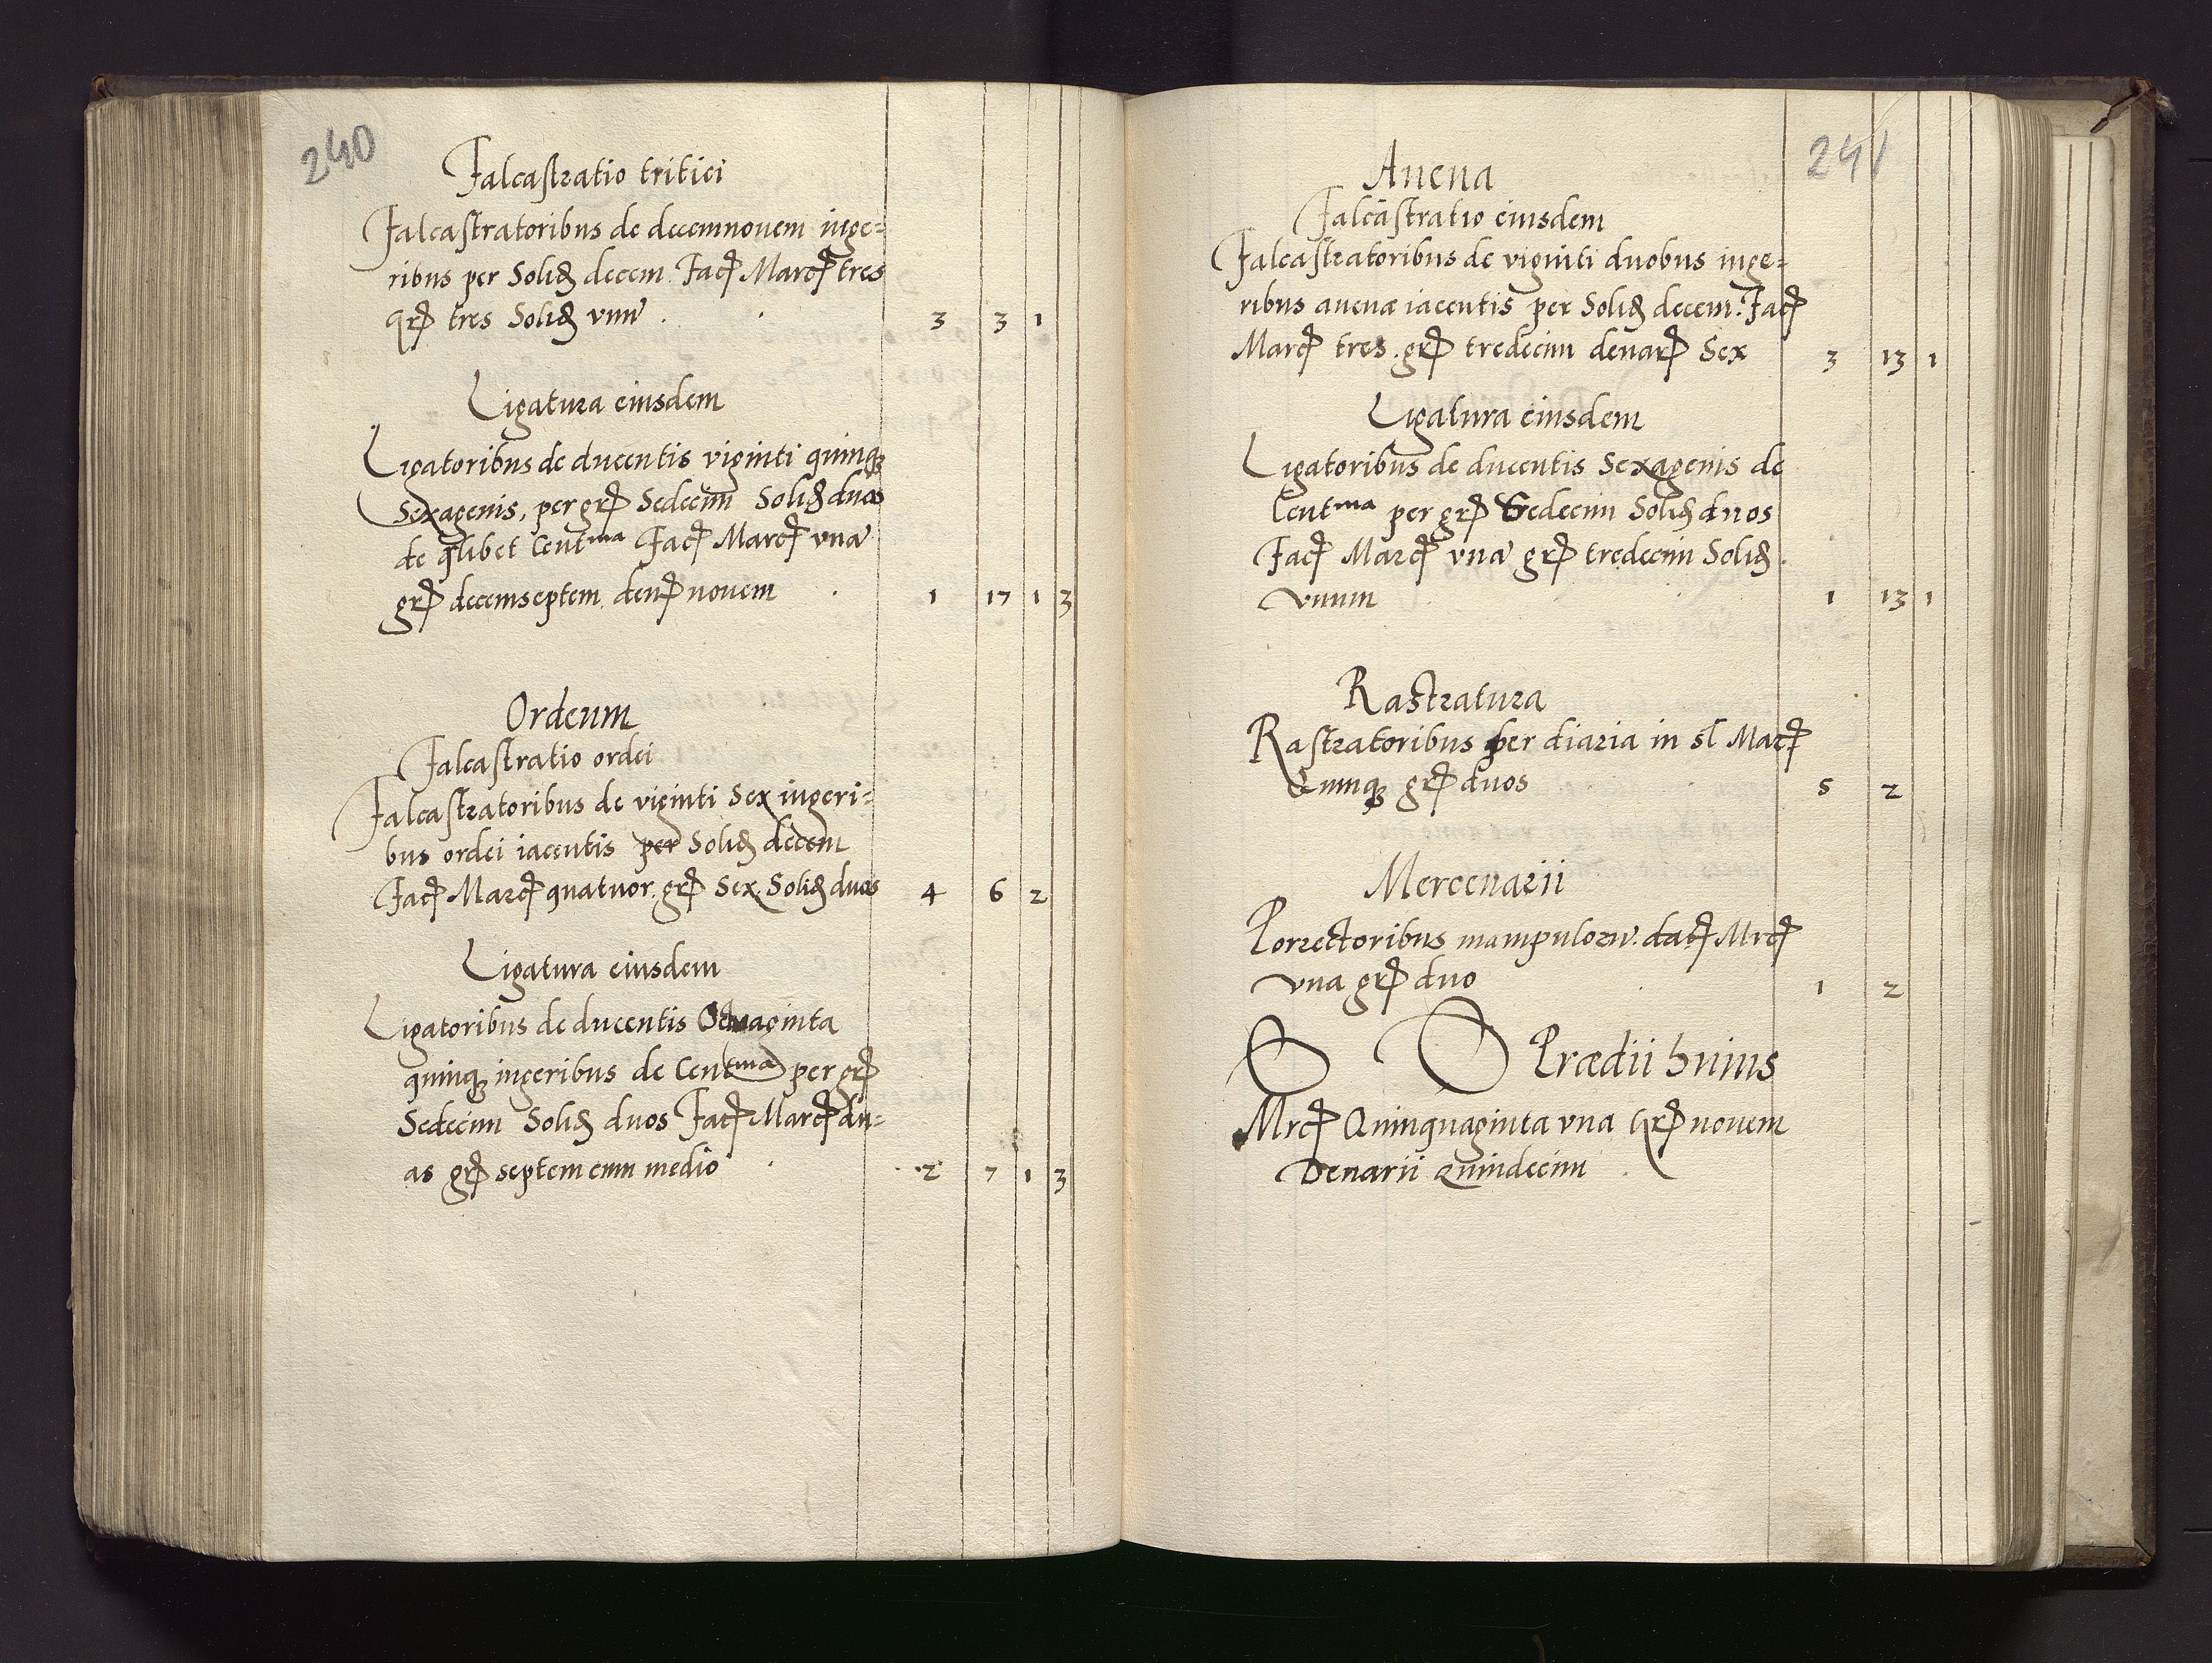 240
Falcastratio tritici
Falcastratoribus de decemnovem iuge=
ribus per Solid decem. Fac Marc tres
Gr tres Solid vnu . . 3 3 1
Ligatura eiusdem
Ligatoribus de ducentis viginti quinq
Sexagenis, per gr Sedecim Solid duos
de qlibet Centma Fac Marc vna
gr decemseptem den novem . 1 17 1 3
Ordeum
Falcastratio ordei
Falcastratoribus de viginti Sex iugeri=
bus ordei iacentis per Solid decem
Fac Marc quatuor gr Sex Solid duos 4 6 2
Ligatura eiusdem
Ligatoribus de ducentis
quinq iugeribus de Centma per gr
Sedecim Solid duos Fac Marc du=
as gr septem cum medio . 2 7 1 3
241
Auena
Falcastratio eiusdem
Falcastratoribus de viginti duobus iuge=
ribus auenæ iacentis per Solid decem. Fac
Marc tres. gr tredecim denar Sex 3 13 1
Ligatura eiusdem
Ligatoribus de ducentis Sexagenis de
Centma per gr Sedecim Solid duos
Fac Marc vna gr tredecim Solid
vnum 1 13 1
Rastratura
Rastratoribus per diaria in sl Marc
Quinq gr duos 5 2
Mercenarii
Porrectoribus manipuloru. dac Mrc
vna gr duo 1 2
Prædii huius
Mrc Quinquaginta vna Gr novem
Denarii Quindecim